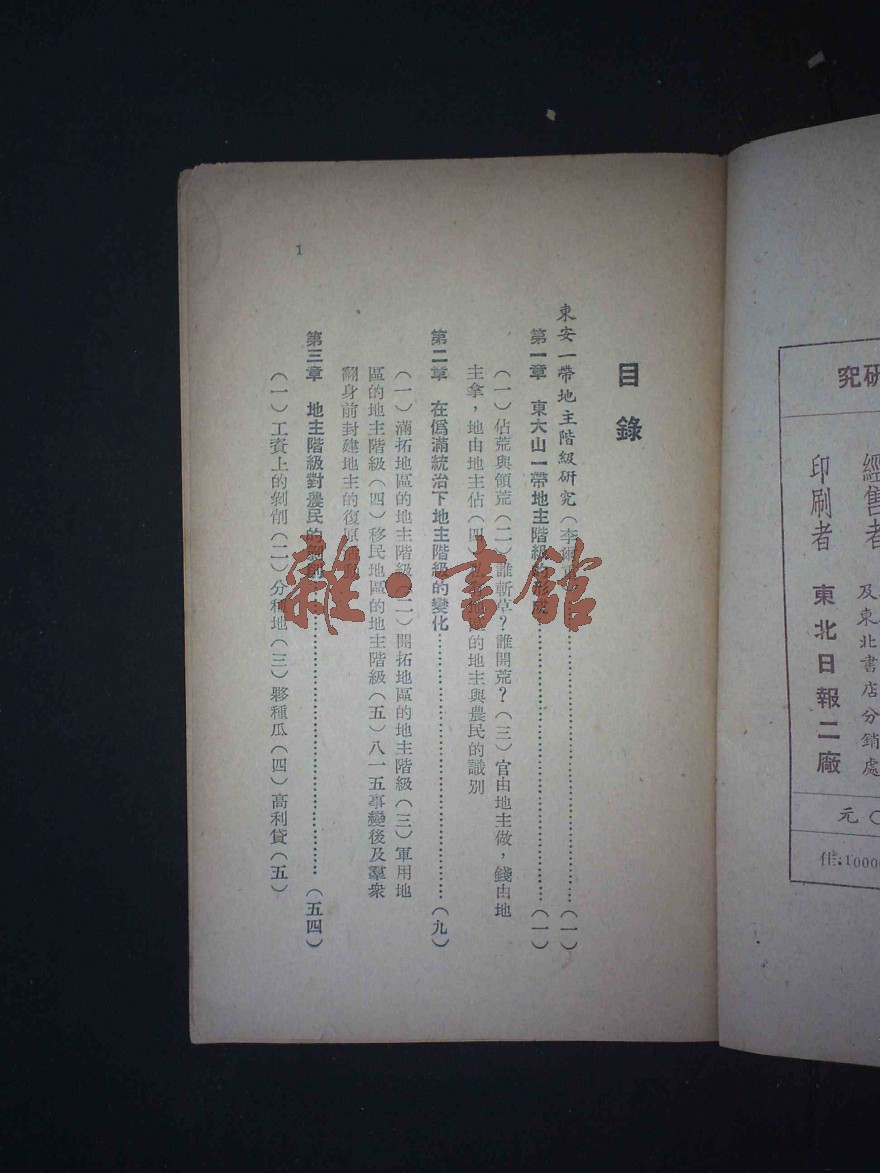 研究
經售者
及東北書店分銷處
印刷者 東北日報二廠
〇元
1000
目錄
東安一帶地主階級研究(李爾…………(一)
第一章 東大山一帶地主階級的形成…………(一)
(一)佔荒與領荒(二)誰斬草?誰開荒?(三)官由地主做,錢由地
主拿,地由地主佔(四) 的地主與農民的識別
第二章 在僞滿統治下地主階級的變化…………(九)
(一)滿拓地區的地主階級(二)開拓地區的地主階級(三)軍用地
區的地主階級(四)移民地區的地主階級(五)八一五事變後及羣衆
翻身前封建地主的復原
第三章 地主階級對農民的剝削…………(五四)
(一)工資上的剝削(二)分種地(三)夥種瓜(四)高利貸(五)
1
雜·書館